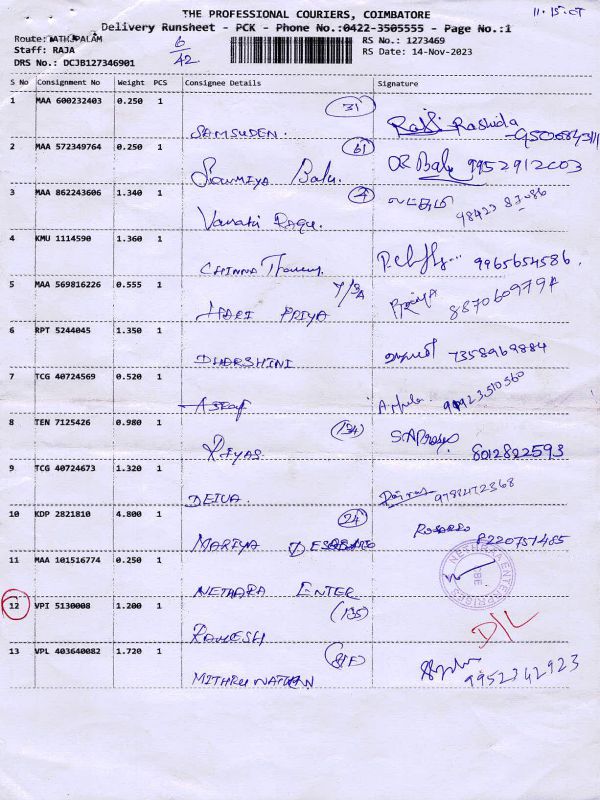 THE PROFESSIONAL COURIERS, COIMBATORE
11.15.CT
Delivery Runsheet - PCK - Phone No.:0422-3505555 - Page No.:1
Route: PALAM
Staff: RAJA
DRS No.: DCJB127346901
6/42
RS No.: 1273469
RS Date: 14-Nov-2023
S No Consignment No Weight PCS Consignee Details Signature
1 MAA 600232403 0.250 1 SAMSUDEN. (31) Rashida
2 MAA 572349764 0.250 1 Sowmiya Balu. (61) Balu 9952912003
3 MAA 862243606 1.340 1 Vanathi Ragu. (4)
4 KMU 1114590 1.360 1 CHINNA 9965654586.
5 MAA 569816226 0.555 1 HARI PRIYA 7/3A Priya
6 RPT 5244045 1.350 1 DHARSHINI 7358969884
7 TCG 40724569 0.520 1
8 TEN 7125426 0.980 1 RIYAS. (134) 8012822593
9 TCG 40724673 1.320 1 DEIVA.
10 KDP 2821810 4.800 1 MARIYA (24) ROSARIO
11 MAA 101516774 0.250 1 NETHRA ENTER NETHRA ENTERPRISES
12 VPI 5130008 1.200 1 RAMESH (135) D/L
13 VPL 403640082 1.720 1 MITHRU NATHAN 9952342923